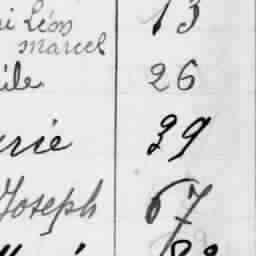 Léon 13
Marcel
ile 26
rie 39
Joseph 67